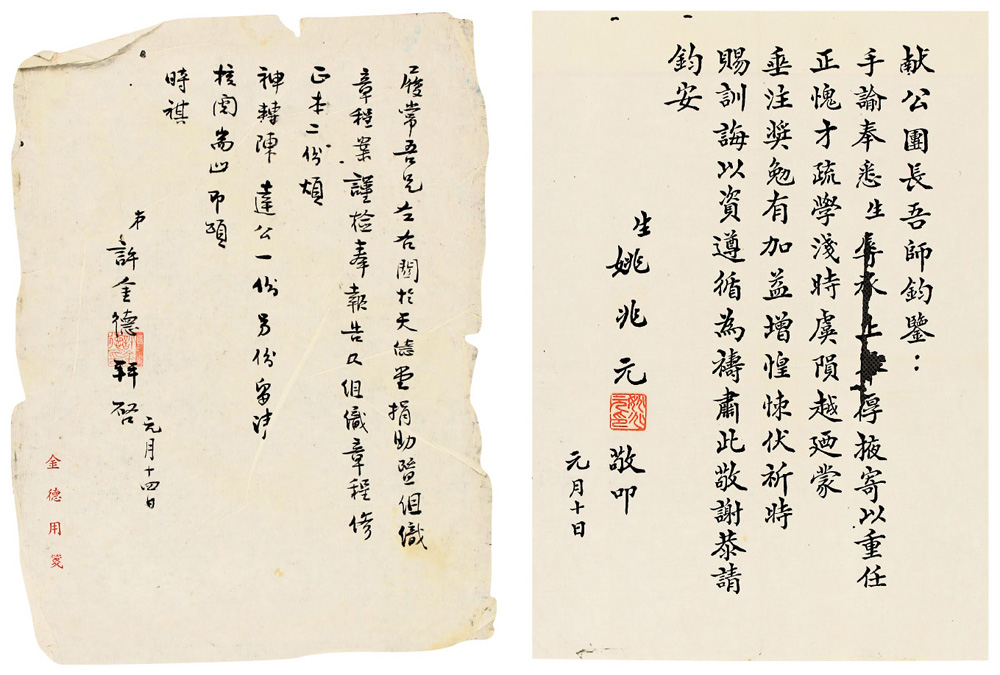 履常吾兄左右關於天德堂捐助暨組織
章程業謹檢奉報告及組織章程修
正本二份煩
神轉陳達公一份另份留
核閱耑此布頌
時祺
弟許金德拜啓
元月十四日
金德用箋
献公團長吾師鈞鑒：
手諭奉悉生辱承上 掖寄以重任
正愧才疏學淺時虞隕越廼蒙
垂注奬勉有加益增惶悚伏祈時
賜訓誨以資遵循為禱肅此敬謝恭請
鈞安
生姚兆元敬叩
元月十日